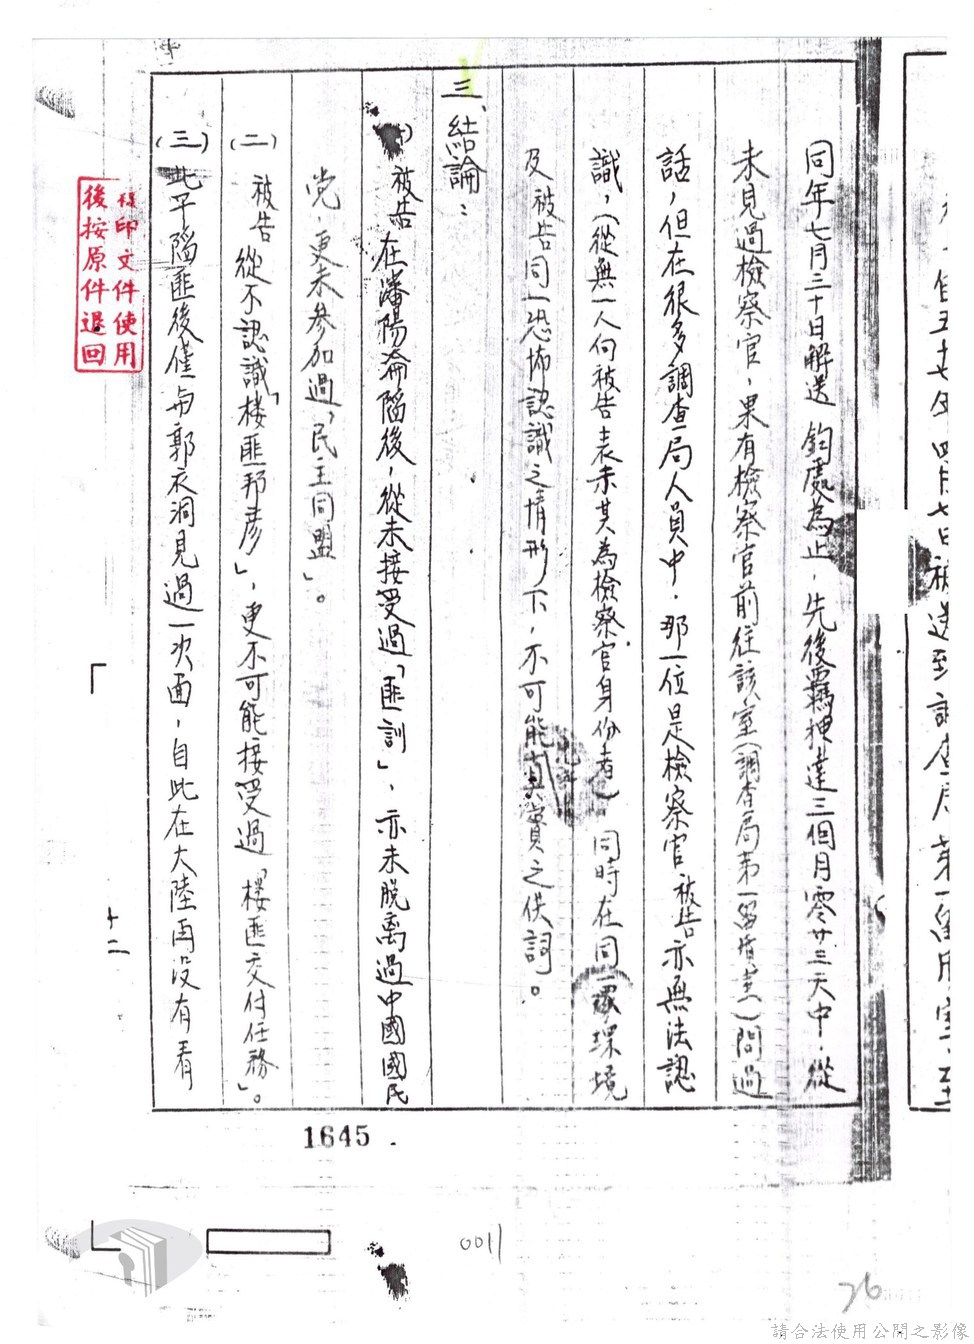 五十七年四月七日被送至調查局第一留用室、至
同年七月三十日解送 鈞處為止，先後羈押達三個月零廿三天中，從
未見過檢察官，果有檢察官前往該室（調查局第一留質室）問過
話，但在很多調查局人員中，那一位是檢察官被告亦無法認
識，（從無一人向被告表示其為檢察官身份者）同時在同一環境
及被告同一恐怖認識之情形下，不可能真實之供詞。
三、結論：
被告在瀋陽淪陷後，從未接受過「匪訓」，亦未脫離過中國國民
党，更未參加過「民主同盟」。
(二) 被告從不認識「樓匪邦彥」，更不可能接受過「樓匪交付任務」。
(三) 北平陷匪後僅與郭衣洞見過一次面，自此在大陸再沒有看
十二
印文件使用
後按原件退回
1645
0011
76
請合法使用公開之影像